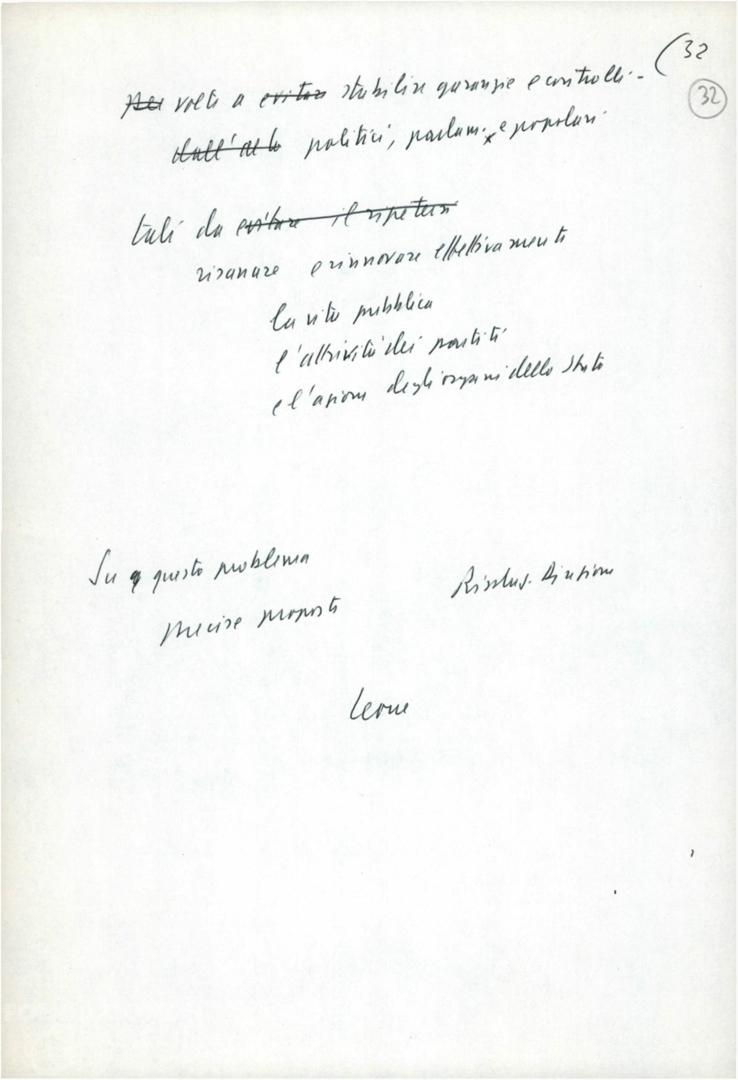 (32
32
~~Per~~ volte a ~~evitare~~ stabilire garanzie e controlli -
~~dall'alto~~ politici, parlam. e popolari
tali da ~~evitare il ripetersi~~
risanare e rinnovare effettivamente
la vita pubblica
l'attività dei partiti
e l'azione degli organi dello Stato
Su questo problema
precise proposte
Risoluz. Direzione
Leone